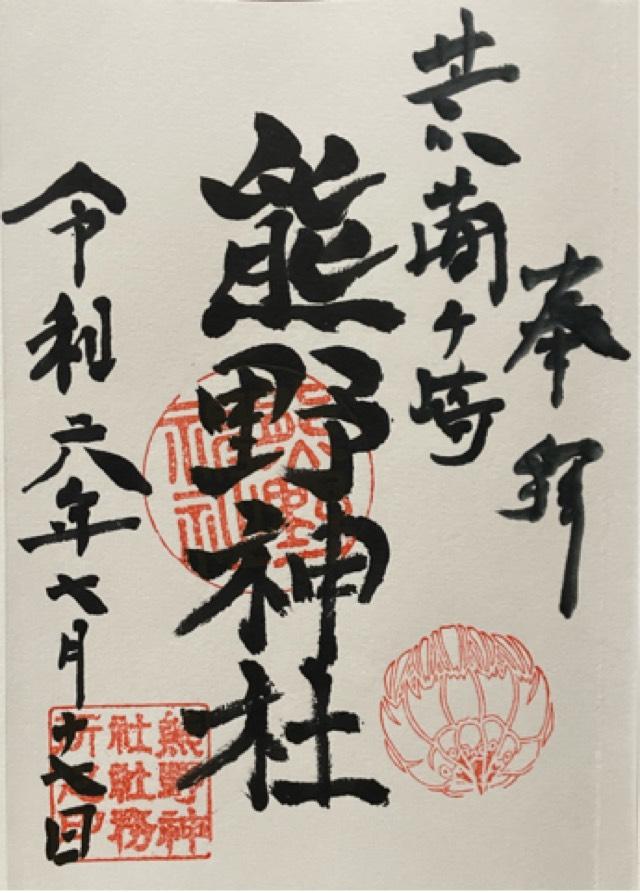 奉拝
荒藺ヶ崎
熊野神社
令和六年七月十七日
熊野
神社
熊野神
社社務
所之印